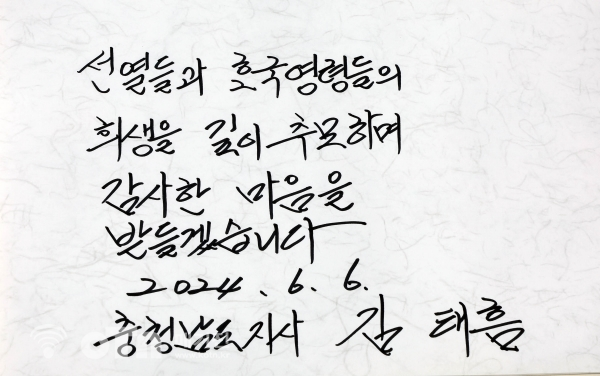 선열들과 호국영령들의
희생을 깊이 추모하며
감사한 마음을
받들겠습니다
2024. 6. 6.
충청남도지사 김태흠